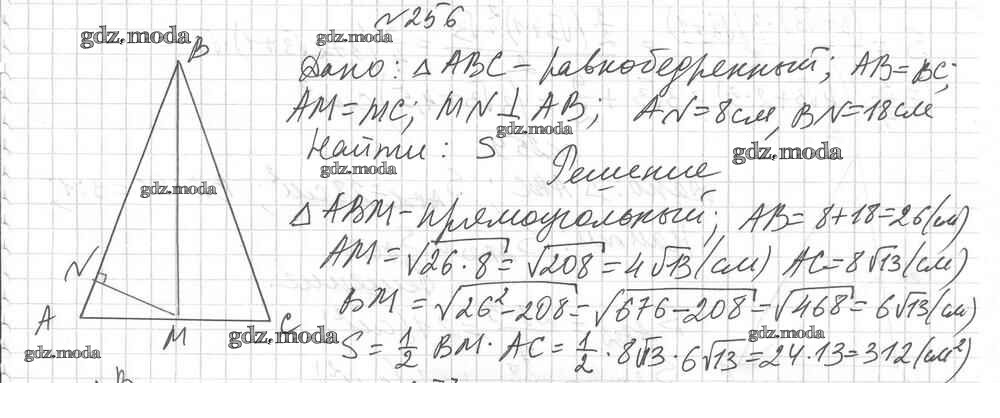 №256
gdz.moda
gdz.moda
B
Дано: △ ABC – равнобедренный; AB=BC;
AM=MC; MN⊥AB; AN=8см, BN=18см
gdz.moda
Найти: S
gdz.moda
gdz.moda
Решение
gdz.moda
△ ABM – прямоугольный; AB=8+18=26(см)
AM=√26·8=√208=4√13(см) AC=8√13(см)
N
BM=√26²-208=√676-208=√468=6√13(см)
A
M
C
gdz.moda
gdz.moda
S=1/2 BM·AC=1/2·8√13·6√13=24·13=312(см²)
gdz.moda
B